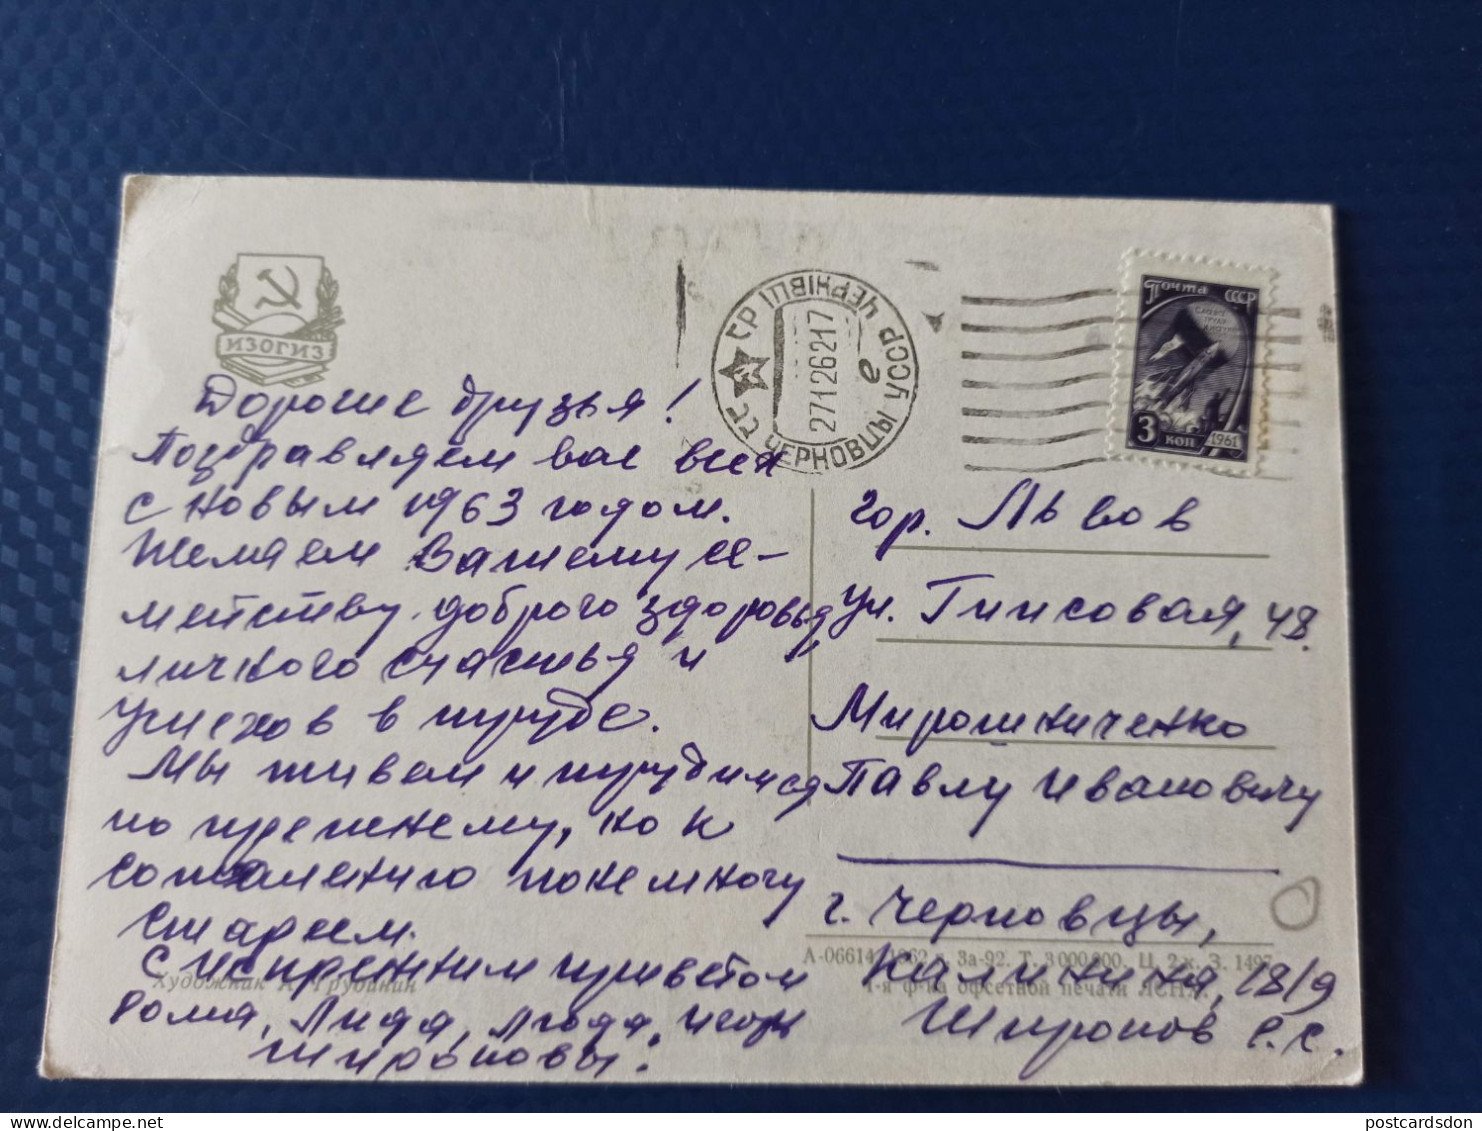 ИЗОГИЗ
Дорогие друзья!
Поздравляем вас всех
с новым 1963 годом.
Желаем Вашему се-
мейству доброго здоровья
личного счастья и
успехов в труде.
Мы живем и трудимся
по прежнему, но к
сожалению понемногу
стареем.
С искренним приветом
Рома, Лида, Люда, Игорь
Широковы.
Художник А. Трубинин
УССР ЧЕРНІВЦІ
22 ЧЕРНОВЦЫ УССР
27126217
е
Почта СССР
3 коп 1961
гор. Львов
ул. Гипсовая, 48.
Мирошниченко
Павлу Ивановичу
г. Черновцы,
А-06614 1962 г. За-92. Т. 3 000 000. Ц. 2 к. З. 1497
Калинина, 18/9
1-я ф-ка офсетной печати ЛСНХ.
Широков С.С.
postcardsdon